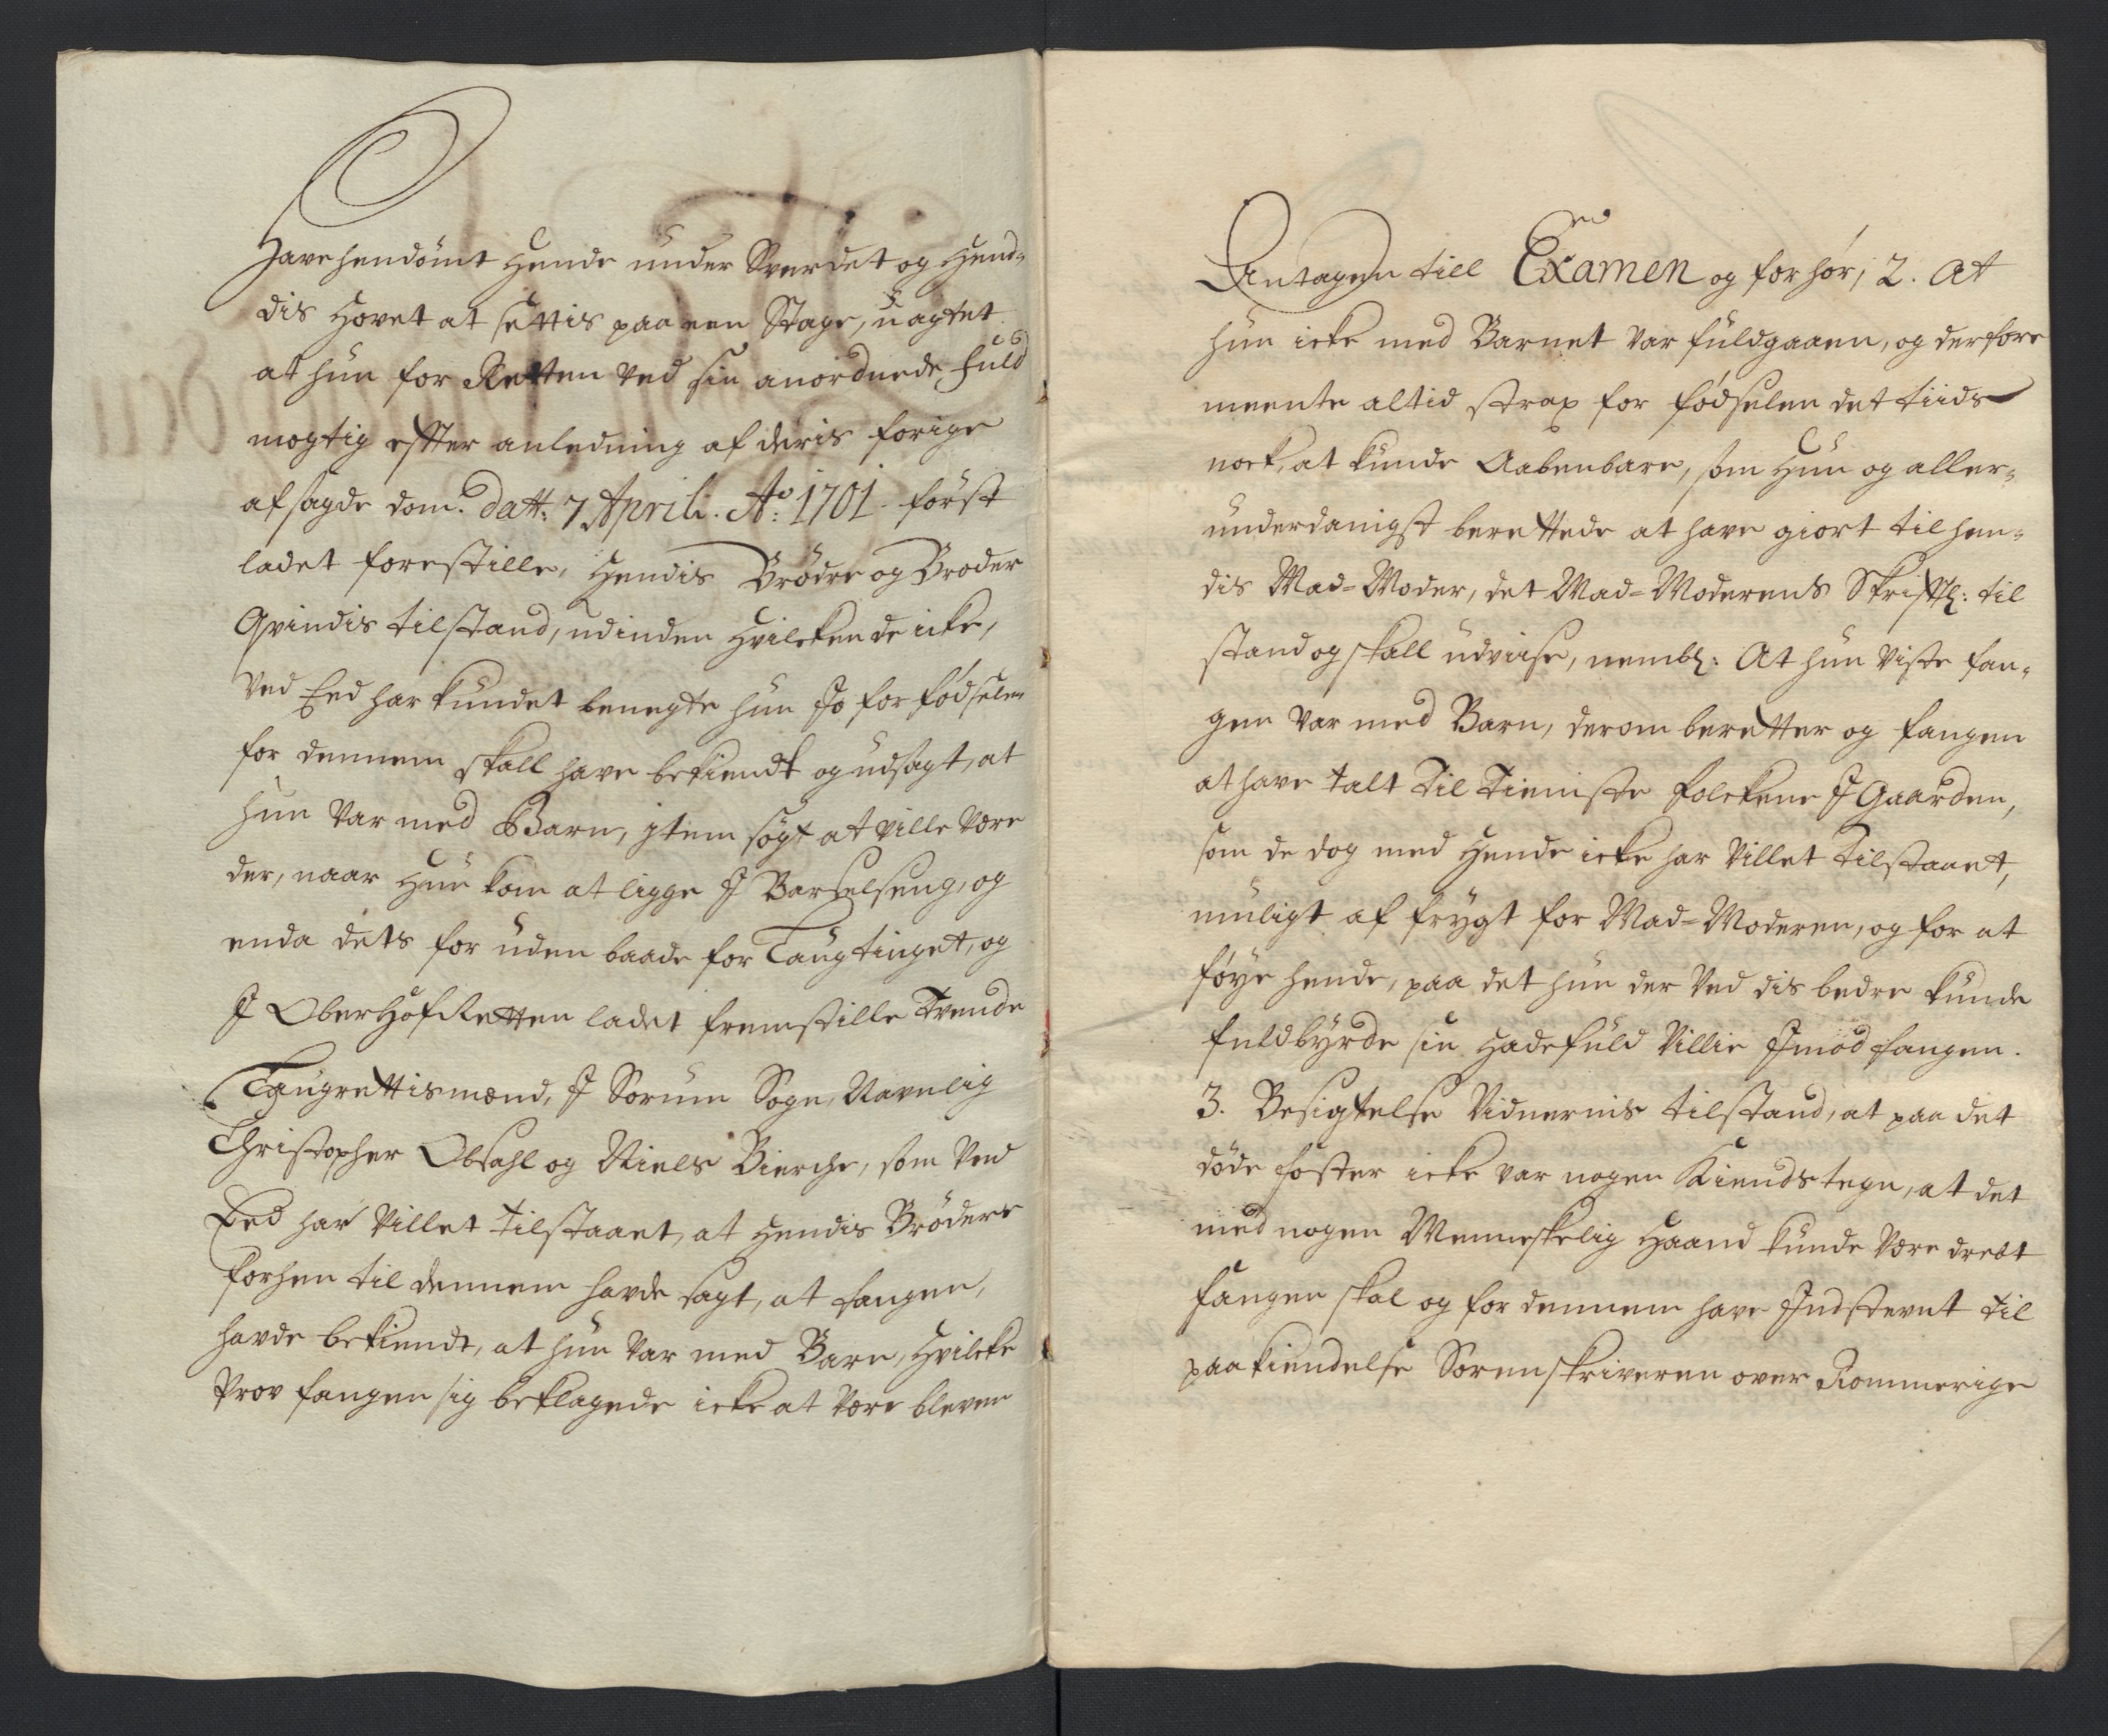 Have hendömt Hende under Sverdet og Hend-
dis Hovet at settis paa een Stage, uagtet
at hun for Retten ved sin anordnede Fuld
mogtig effter anledning af deris forige
afsagde dom. datt: 7 April: Ao: 1701. först
ladet forestille, Hendis Brödre og Broder
Qvindis tilstand, udinden Hvilcken de icke,
ved Eed har kundet benegte hun Jo for födselen
for dennem skall have bekiendt og udsagt, at
hun var med Barn, jtem sögt at ville være
der, naar Hun kom at ligge J Barselseng, og
enda dets for uden baade for Laugtinget, og
J OberHofRetten ladet fremstille Trende
Laugrettismænd, J Sorum Sogn, Navnlig
Christopher Obsahl og Niels Bierche, som ved
Eed har villet tilstaaet, at Hendis Brödere
forhen til dennem havde sagt, at fangen,
havde bekiendt, at hun var med Barn, Hvilcke
Prov fangen sig beklagede icke at være bleven
Antagen till Examen og forhör, 2. At
hun icke med Barnet var fuldgaaen, og derfore
meente altid strax for födselen det tiids
nock, at kunde Aabenbare, som Hun og aller-
underdanigst berettede at have giort til hen-
dis Mad-Moder, det Mad-Moderens Skrifftl: til
stand og skall udviise, nembl: At hun viste fan-
gen var med Barn, derom beretter og fangen
at have talt til Tieniste folckene J Gaarden,
som de dog med Hende icke har villet tilstaaet,
muligt af frygt for Mad-Moderen, og for at
föye hende, paa det hun der ved dis bedre kunde
fuldbyrde sin Hadefuld Villie Jmod fangen.
3. Besigtelse Vidnernis tilstand, at paa det
döde foster icke var nogen Kiendstegn, at det
med nogen Menneskelig Haand kunde være drebt
fangen skal og for dennem have Jndstevnt til
paakiendelse Sorenskriveren over Rommerige